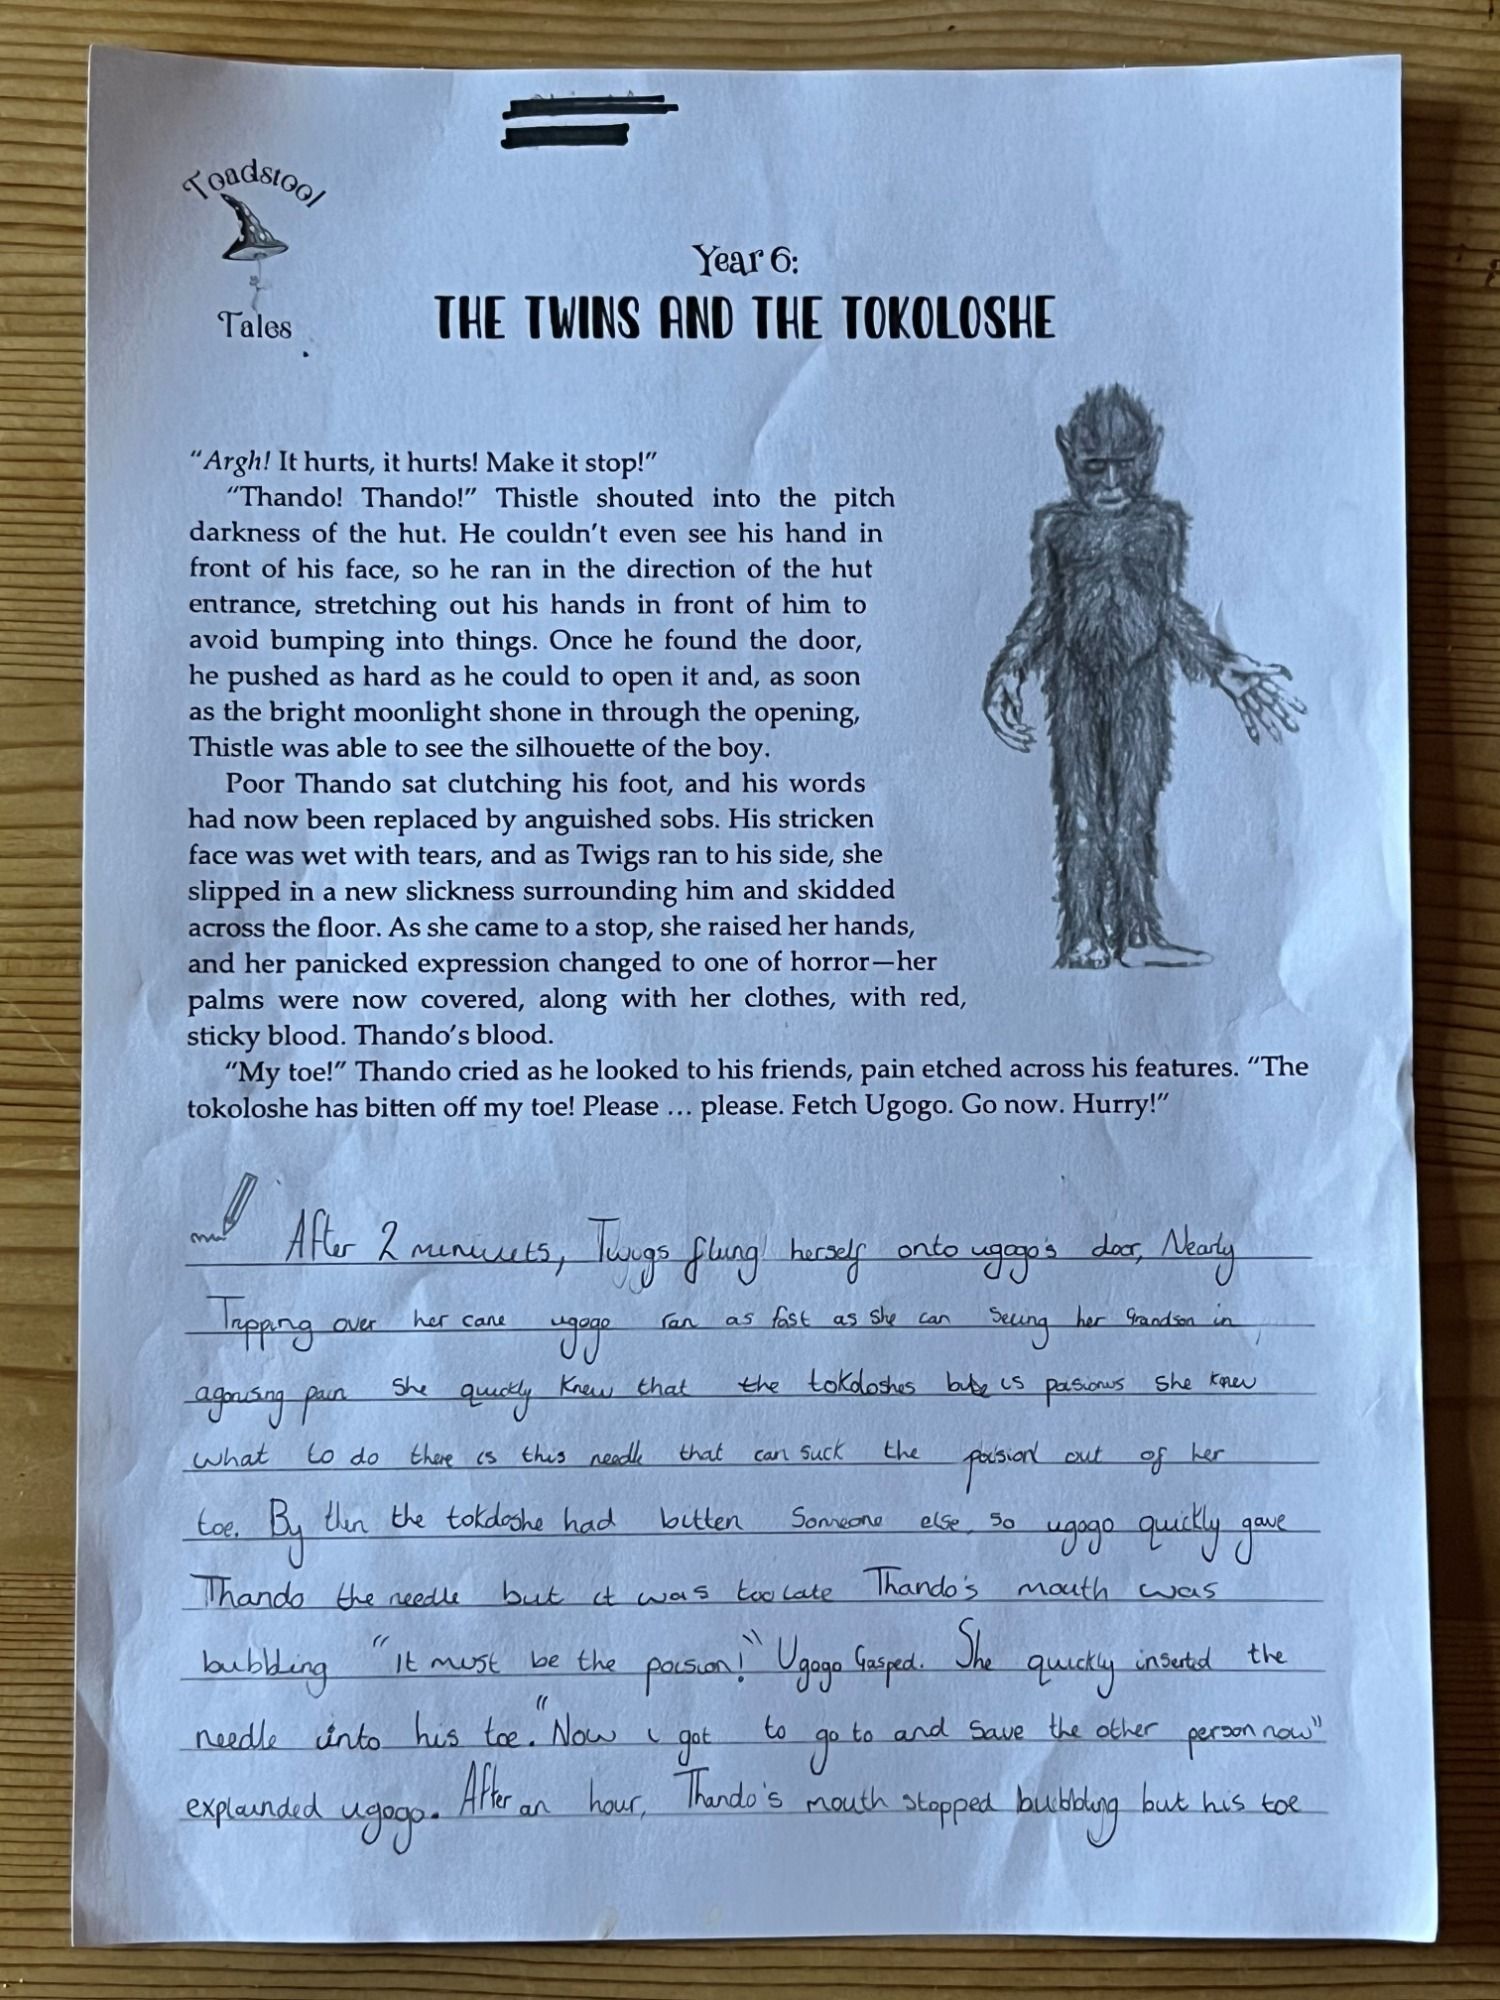 Toadstool
Tales
Year 6:
THE TWINS AND THE TOKOLOSHE
“Argh! It hurts, it hurts! Make it stop!”
“Thando! Thando!” Thistle shouted into the pitch
darkness of the hut. He couldn’t even see his hand in
front of his face, so he ran in the direction of the hut
entrance, stretching out his hands in front of him to
avoid bumping into things. Once he found the door,
he pushed as hard as he could to open it and, as soon
as the bright moonlight shone in through the opening,
Thistle was able to see the silhouette of the boy.
Poor Thando sat clutching his foot, and his words
had now been replaced by anguished sobs. His stricken
face was wet with tears, and as Twigs ran to his side, she
slipped in a new slickness surrounding him and skidded
across the floor. As she came to a stop, she raised her hands,
and her panicked expression changed to one of horror—her
palms were now covered, along with her clothes, with red,
sticky blood. Thando’s blood.
“My toe!” Thando cried as he looked to his friends, pain etched across his features. “The
tokoloshe has bitten off my toe! Please … please. Fetch Ugogo. Go now. Hurry!”
After 2 minuets, Twigs flung herself onto ugogo's door, Nearly
Tripping over her cane ugogo ran as fast as she can seeing her Grandson in
agonising pain She quickly knew that the tokoloshes bite is poisionus she knew
what to do there is this needle that can suck the poision out of her
toe. By then the tokoloshe had bitten Someone else, so ugogo quickly gave
Thando the needle but it was too late Thando's mouth was
bubbling "It must be the poision!" Ugogo Gasped. She quickly inserted the
needle into his toe. "Now i got to go to and save the other person now"
explainded ugogo. After an hour, Thando's mouth stopped bubbling but his toe